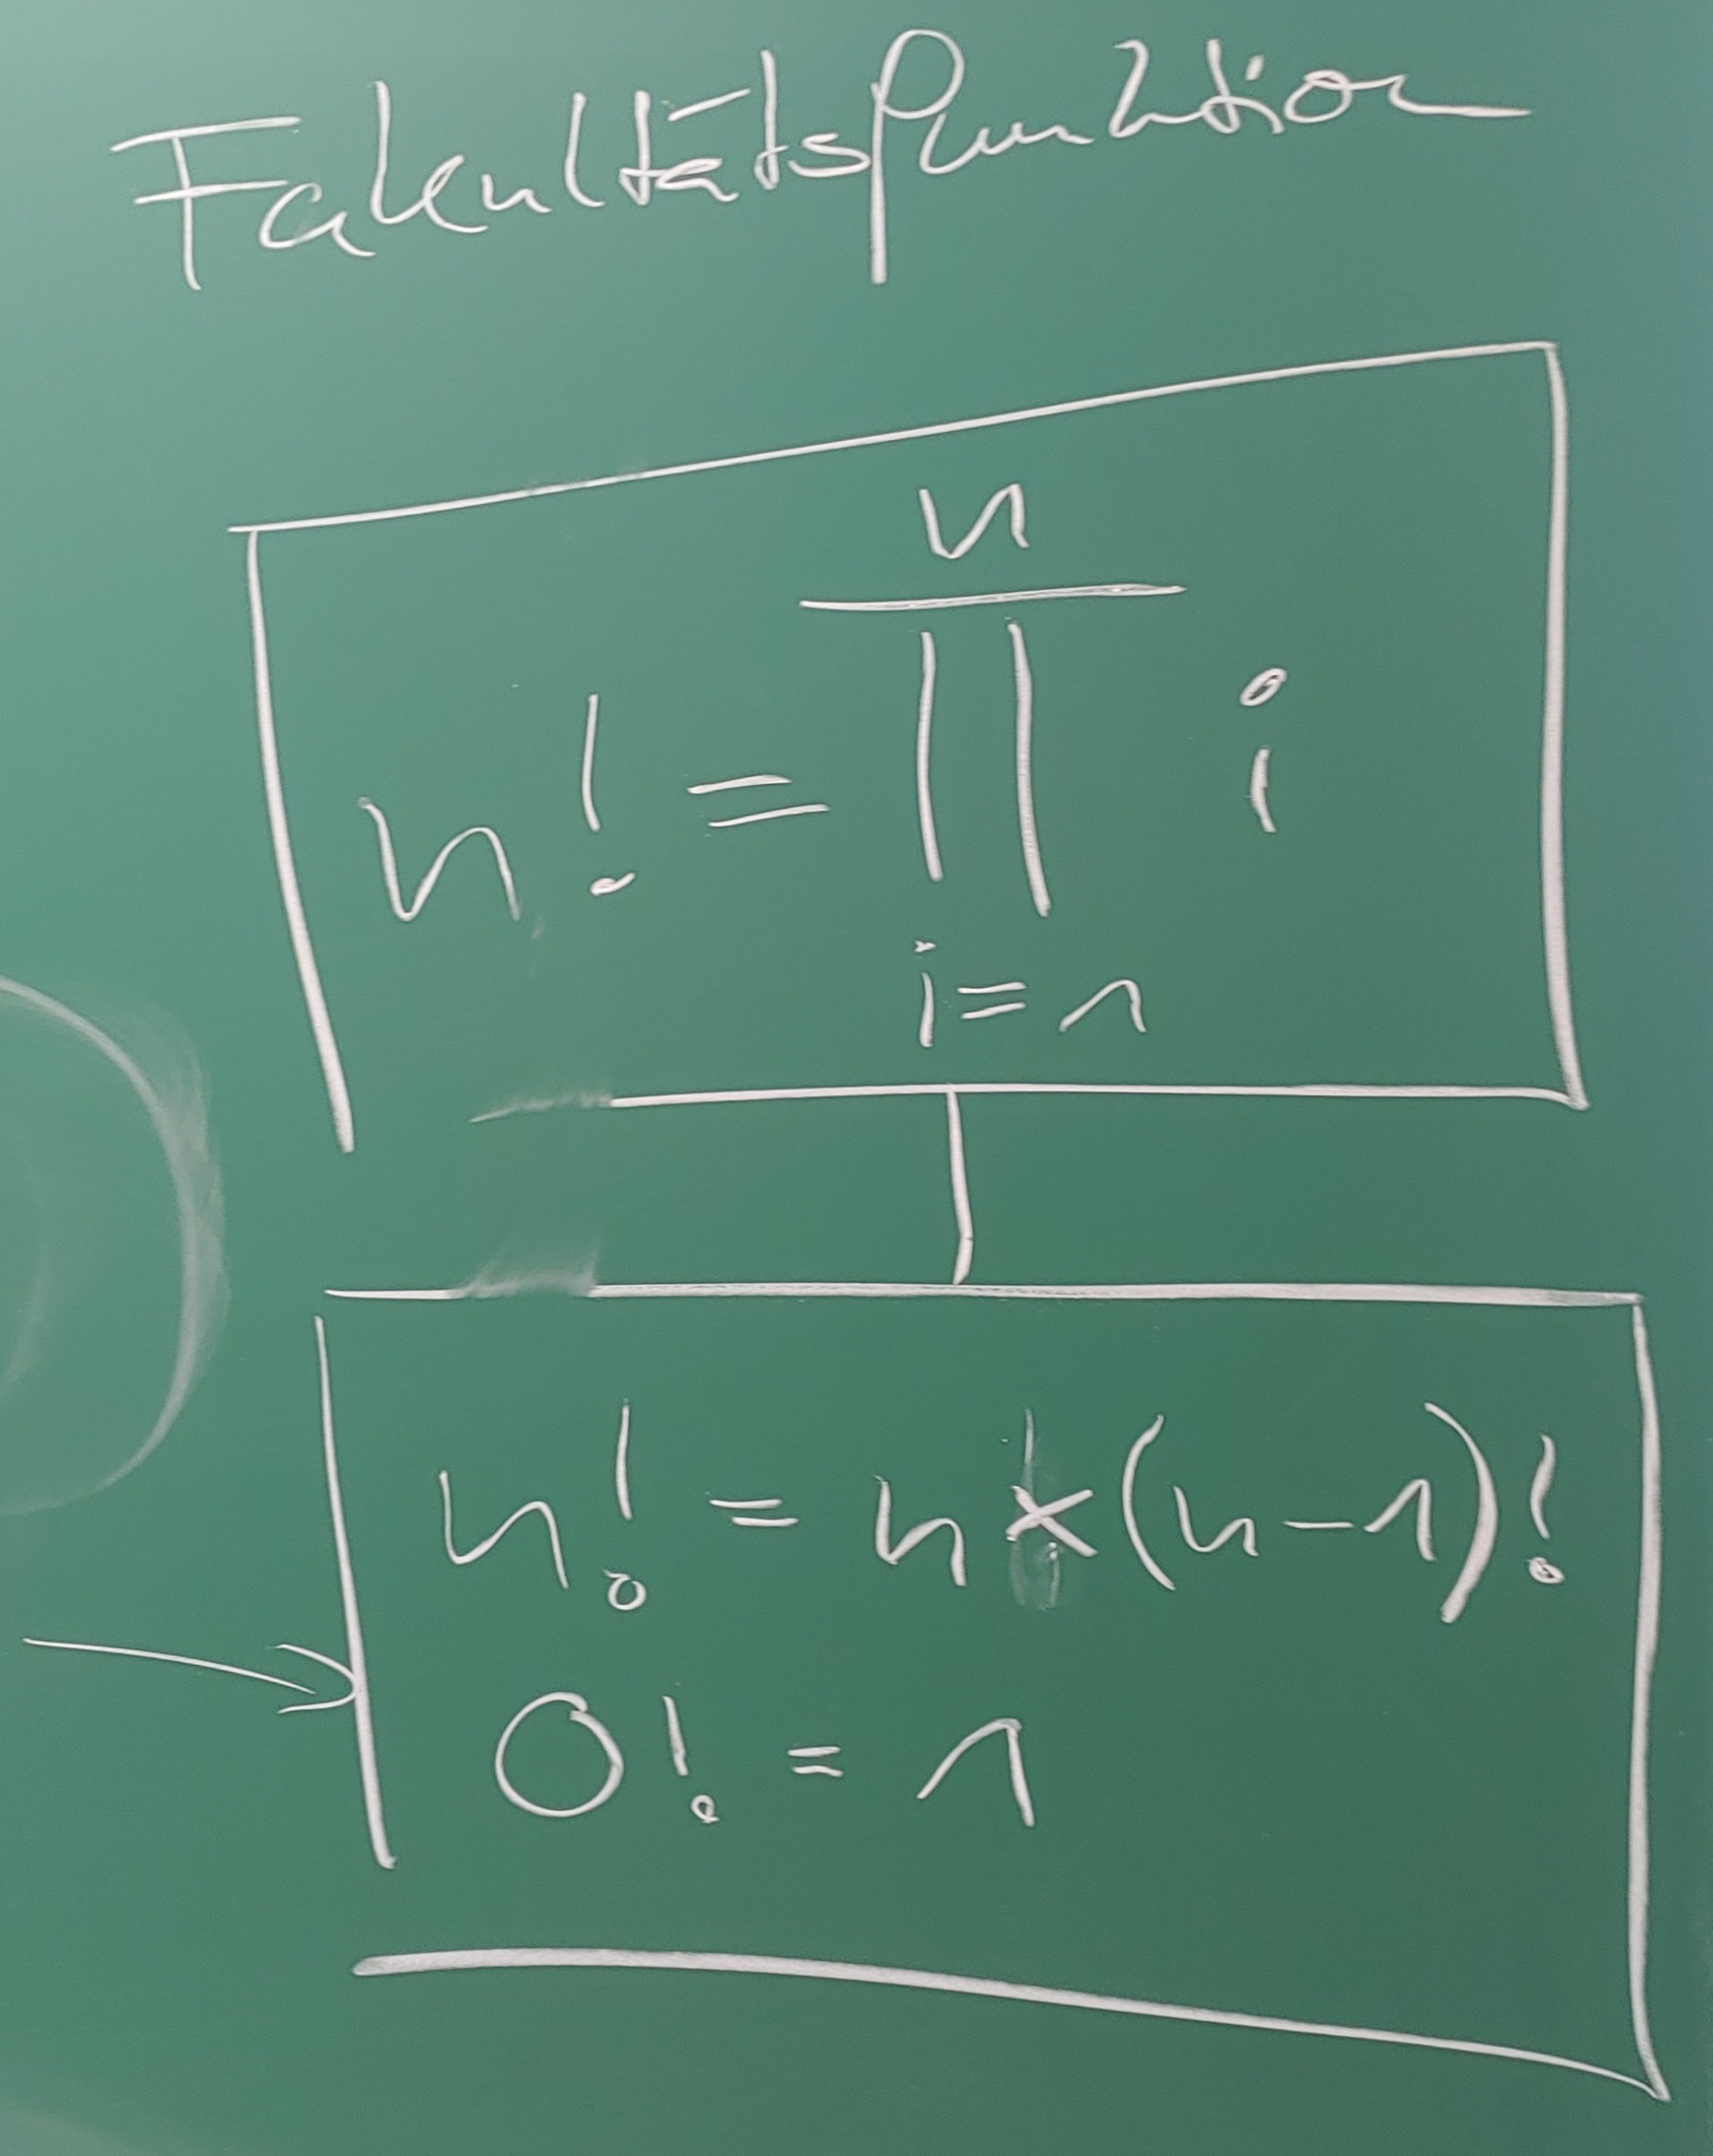 Fakultätsfunktion
n
n! = ∏ i
i=1
n! = n * (n-1)!
0! = 1